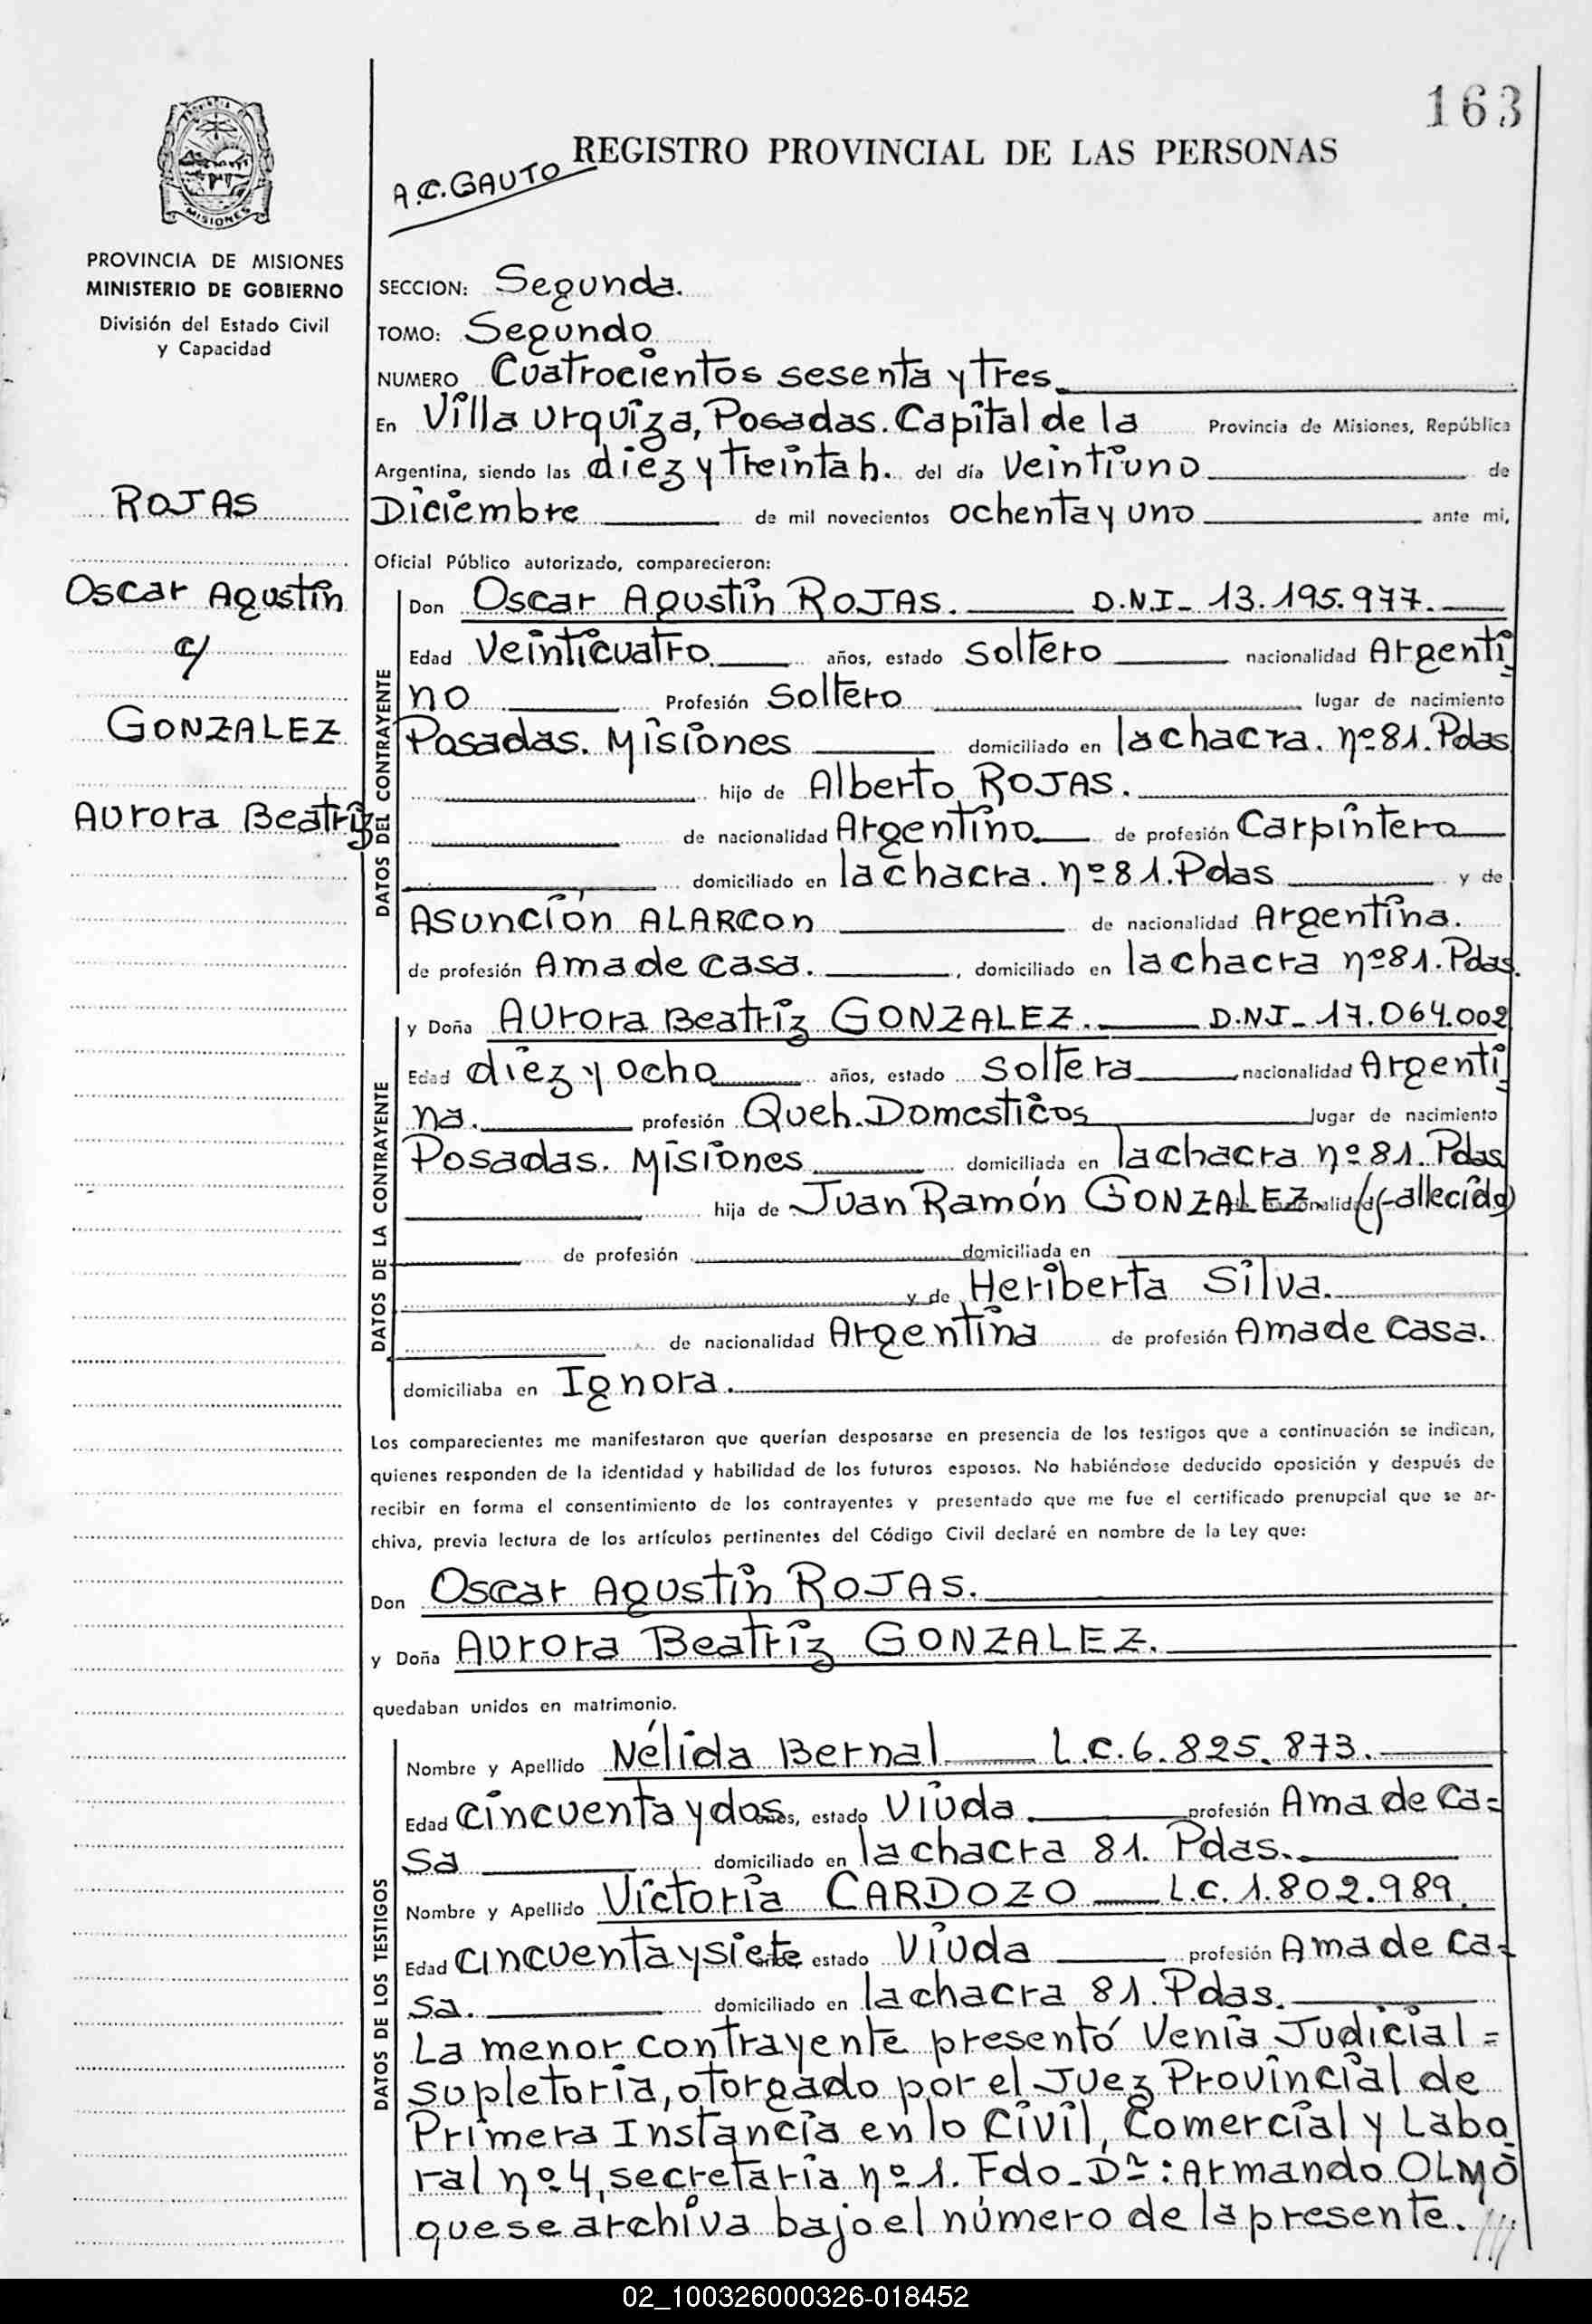 163
REGISTRO PROVINCIAL DE LAS PERSONAS
A.C.GAUTO
PROVINCIA DE
MISIONES
PROVINCIA DE MISIONES
MINISTERIO DE GOBIERNO
División del Estado Civil
y Capacidad
ROJAS
Oscar Agustín
c/
GONZALEZ
Aurora Beatriz
SECCION: Segunda.
TOMO: Segundo
NUMERO Cuatrocientos sesenta y tres.
En Villa Urquiza, Posadas. Capital de la Provincia de Misiones, República
Argentina, siendo las diez y treinta h. del día Veintiuno de
Diciembre de mil novecientos ochenta y uno ante mi,
Oficial Público autorizado, comparecieron:
DATOS DEL CONTRAYENTE
Don Oscar Agustín ROJAS. D.N.I- 13.195.977.
Edad Veinticuatro años, estado soltero nacionalidad Argenti
no Profesión Soltero lugar de nacimiento
Posadas. Misiones domiciliado en la chacra. nº 81. Pdas
hijo de Alberto ROJAS.
de nacionalidad Argentino de profesión Carpintero
domiciliado en la chacra. nº 81. Pdas y de
Asunción ALARCON de nacionalidad Argentina.
de profesión Ama de casa. , domiciliado en la chacra nº 81. Pdas.
DATOS DE LA CONTRAYENTE
y Doña Aurora Beatriz GONZALEZ. D.N.I- 17.064.002
Edad diez y ocho años, estado Soltera nacionalidad Argenti
na. profesión Queh. Domesticos lugar de nacimiento
Posadas. Misiones domiciliada en la chacra nº 81. Pdas
hija de Juan Ramón GONZALEZ (fallecido)
de profesión domiciliada en
y de Heriberta Silva.
de nacionalidad Argentina de profesión Ama de casa.
domiciliaba en Ignora.
Los comparecientes me manifestaron que querían desposarse en presencia de los testigos que a continuación se indican,
quienes responden de la identidad y habilidad de los futuros esposos. No habiéndose deducido oposición y después de
recibir en forma el consentimiento de los contrayentes y presentado que me fue el certificado prenupcial que se ar-
chiva, previa lectura de los artículos pertinentes del Código Civil declaré en nombre de la Ley que:
Don Oscar Agustín ROJAS.
y Doña Aurora Beatriz GONZALEZ.
quedaban unidos en matrimonio.
DATOS DE LOS TESTIGOS
Nombre y Apellido Nélida Bernal L.C. 6.825.873.
Edad cincuenta y dos años, estado Viuda profesión Ama de Ca=
sa domiciliado en la chacra 81. Pdas.
Nombre y Apellido Victoria CARDOZO L.C. 1.802.989.
Edad cincuenta y siete estado Viuda profesión Ama de Ca=
sa. domiciliado en la chacra 81. Pdas.
La menor contrayente presentó Venia Judicial =
supletoria, otorgado por el Juez Provincial de
Primera Instancia en lo Civil, Comercial y Labo
ral nº 4, secretaría nº 1. Fdo- Dr: Armando OLMO
que se archiva bajo el número de la presente. ///
02_100326000326-018452